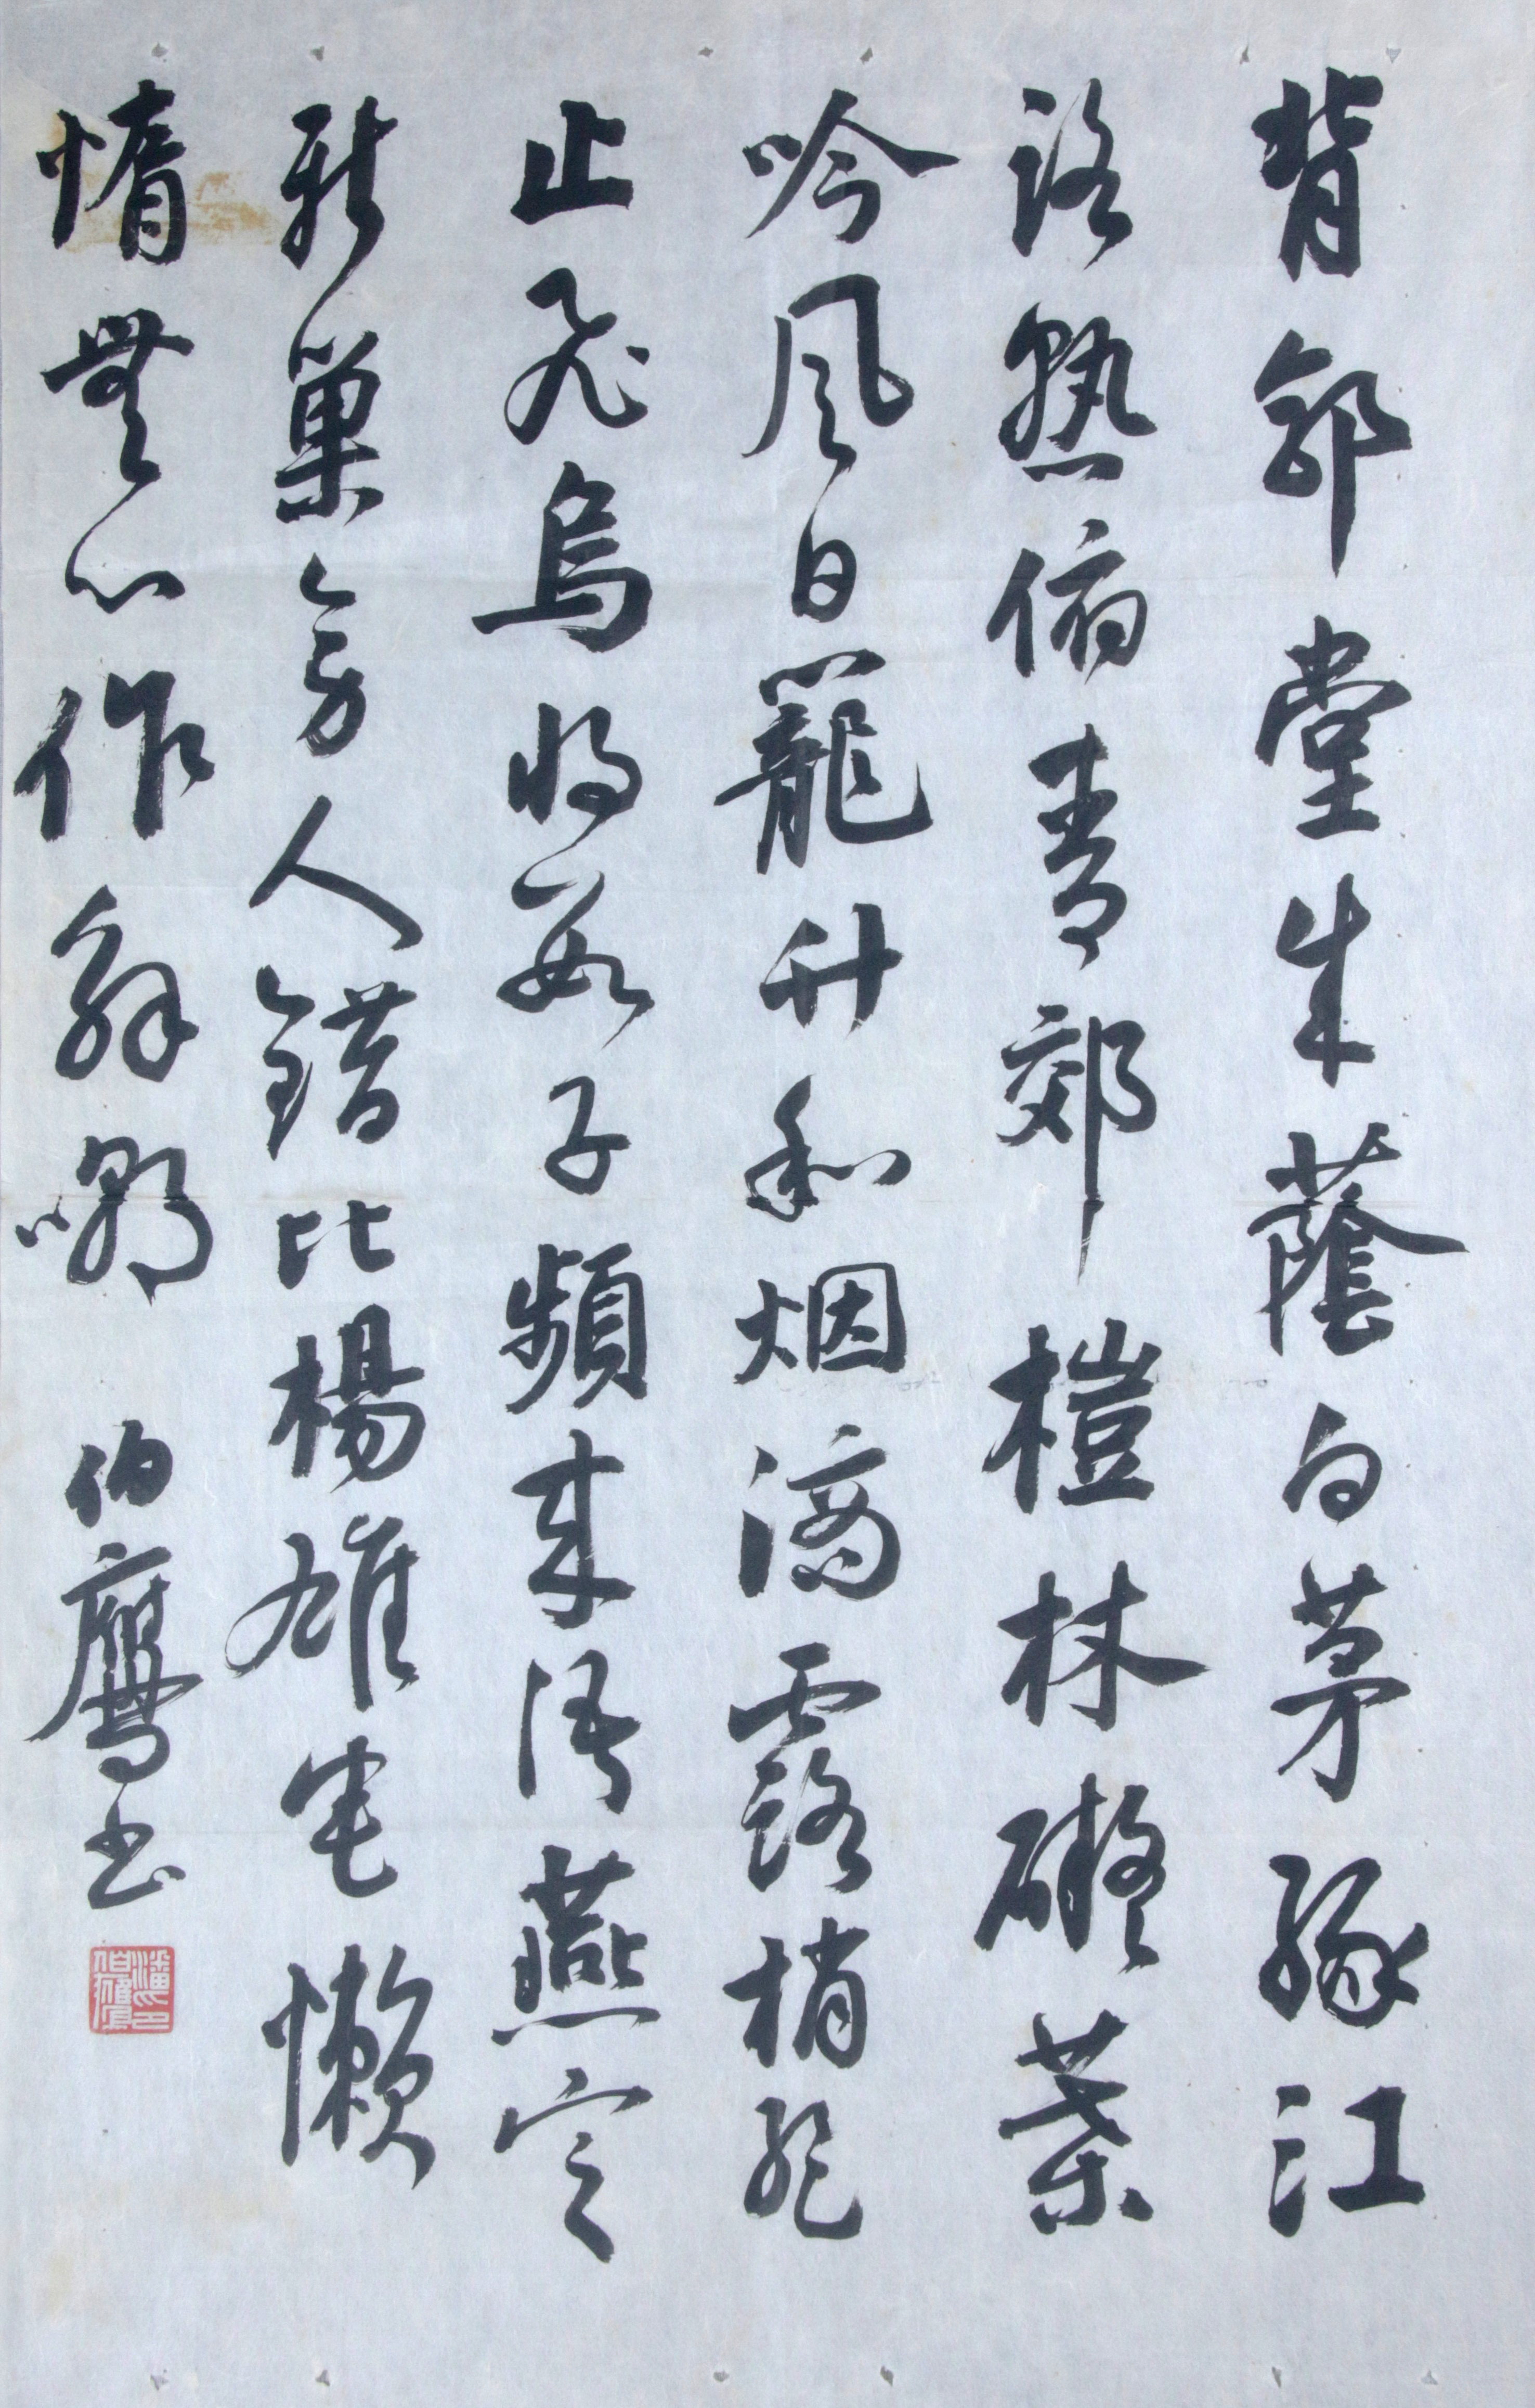 背郭堂成蔭白茅緣江
路熟俯青郊榿林礙葉
吟風日籠竹和烟滴露梢暫
止飛烏將數子頻來語燕定
新巢旁人錯比楊雄宅懶
惰無心作解嘲 伯鷹書
潘伯鷹印